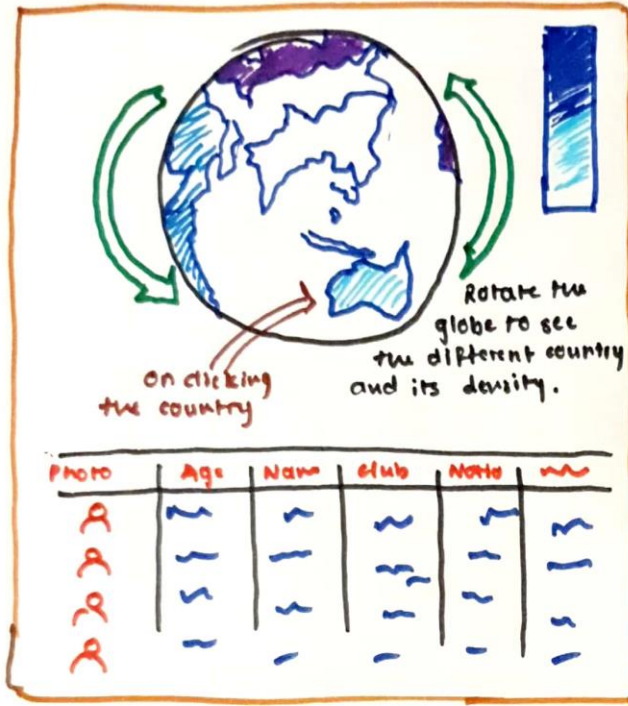 Rotate the
globe to see
the different country
and its density.
on clicking
the country
Photo Age Nam Club